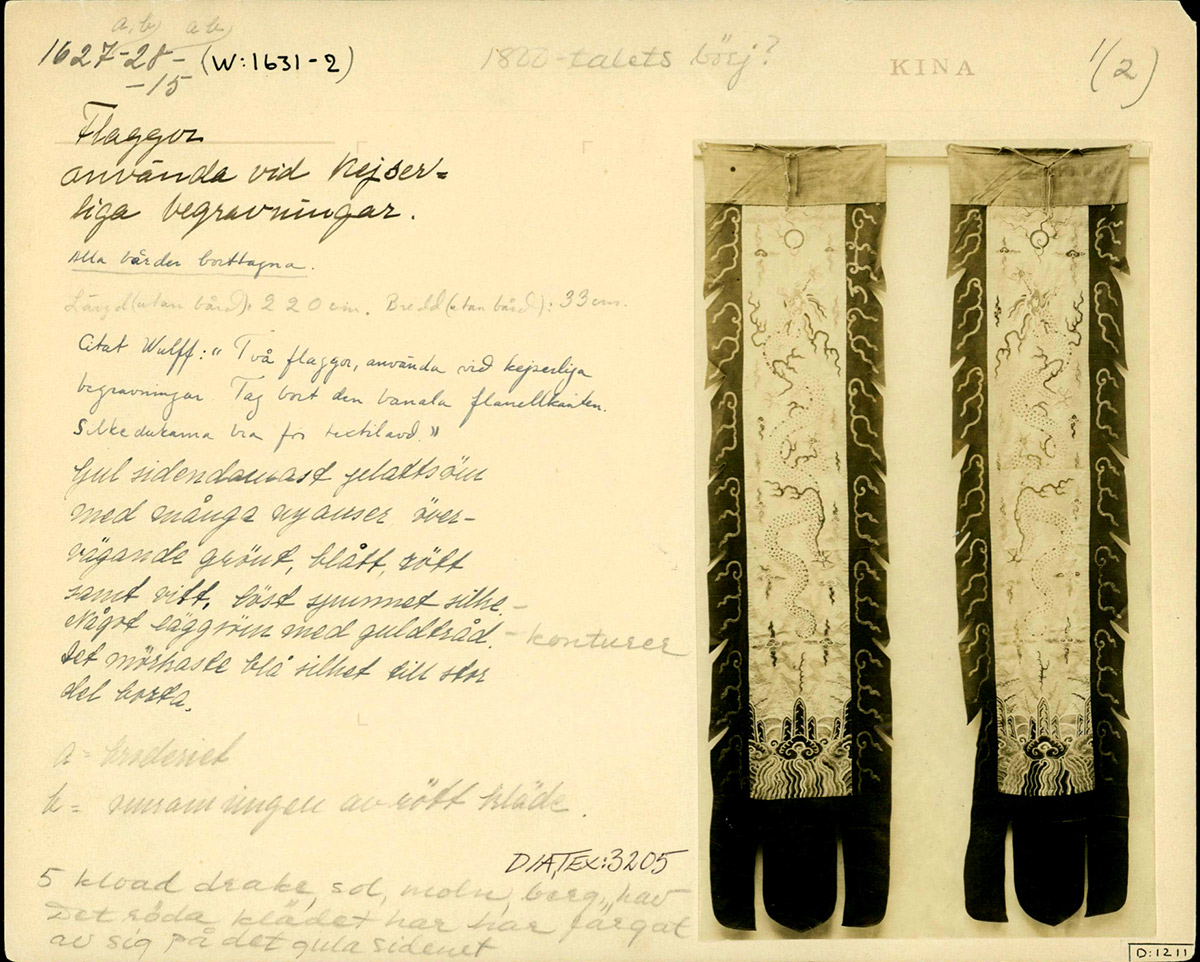 a, b a b
1627-28-
-15
(W:1631-2)
1800-talets börj?
KINA
1/(2)
Flaggor
använda vid Kejser=
liga begravningar.
Alla bårder borttagna.
Längd (utan bård): 220 cm. Bredd (utan bård): 33 cm.
Citat Wulff: "Två flaggor, använda vid kejserliga
begravningar. Tag bort den banala flanellkanten.
Silkedukarna bra för textilavd."
Gul sidendamast plattsöm
med många nyanser över-
vägande grönt, blått, rött
samt vitt, löst spunnet silke.
Något läggsöm med guldtråd. - konturer
Det mörkaste blå silket till stor
del borta.
a = broderiet
b = inramningen av rött kläde.
DIA,TEX:3205
5 kload drake, sol, moln, berg, hav
Det röda klädet har har färgat
av sig på det gula sidenet
D:1211